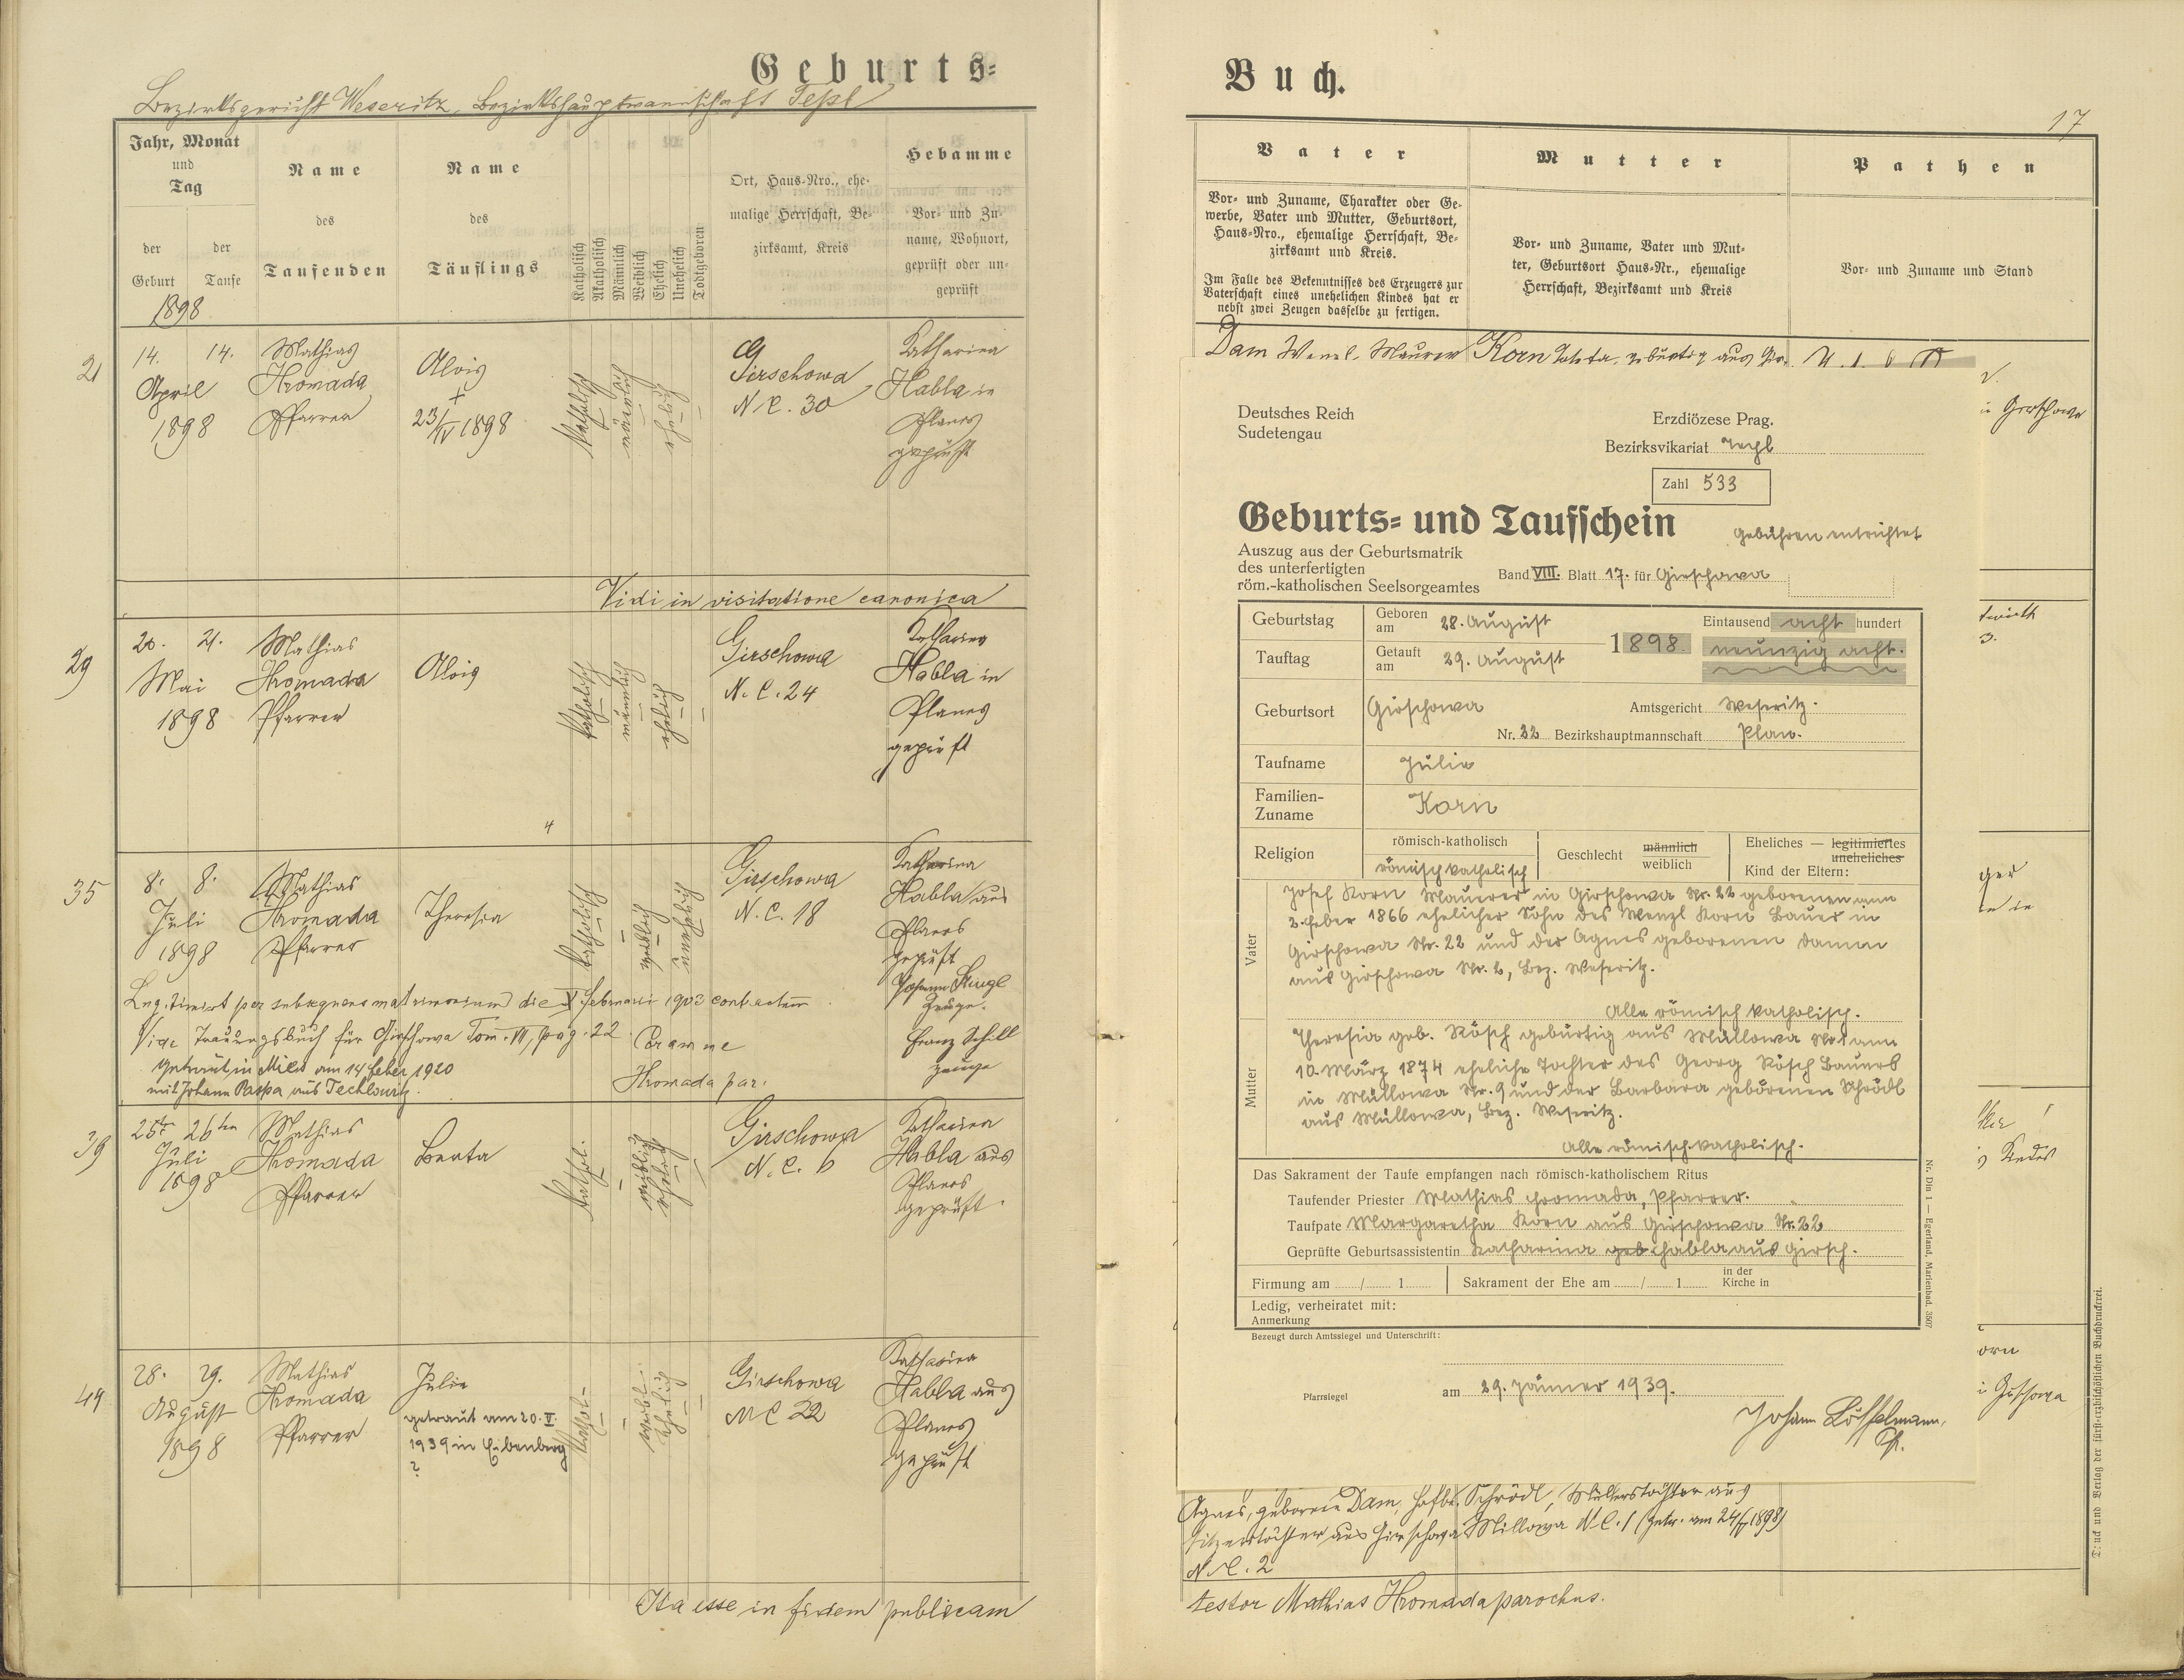 Geburts=
Bezirksgericht Weseritz, Bezirkshauptmannschaft Tepl
Jahr, Monat
und
Tag
der
Geburt
der
Taufe
Name
des
Taufenden
Name
des
Täuflings
Katholisch
Akatholisch
Männlich
Weiblich
Ehelich
Unehelich
Todtgeboren
Ort, Haus-Nro., ehe-
malige Herrschaft, Be-
zirksamt, Kreis
Hebamme
Vor- und Zu-
name, Wohnort,
geprüft oder un-
geprüft
1898
21
14. 14.
April
1898
Mathias
Hromada
Pfarrer
Alois
+
23/IV 1898
katholisch
männlich
ehelich
Girschowa
N. C. 30
Katharina
Habla in
Planes
geprüft
Vidi in visitatione canonica
29
20. 21.
Mai
1898
Mathias
Hromada
Pfarrer
Alois
katholisch
männlich
ehelich
Girschowa
N. C. 24
Katharina
Habla in
Planes
geprüft
35
8. 8.
Juli
1898
Mathias
Hromada
Pfarrer
Theresia
katholisch
weiblich
unehelich
Girschowa
N. C. 18
Katharina
Habla aus
Planes
geprüft
Johann Stingl
Zeuge.
Franz Schill
Zeuge
Legitimirt per subsequens matrimonium die Februarii 1902 contractum.
Vide Trauungsbuch für Girschowa Tom. VI, pag. 22
Hromada par.
Getraut in Mies am 14 feber 1920
mit Johann Paspa aus Techlowitz.
39
25te 26ten
Juli
1898
Mathias
Hromada
Pfarrer
Berta
kathol.
weiblich
ehelich
Girschowa
N. C. 6
Katharina
Habla aus
Planes
geprüft.
49
28. 29.
August
1898
Mathias
Hromada
Pfarrer
Julie
getraut am 20. V.
1939 in Eibenberg
?
kathol.
weibl.
ehelich
Girschowa
NC 22
Katharina
Habla aus
Planes
geprüft
Ita esse in fidem publicam
Buch.
17
Vater
Vor- und Zuname, Charakter oder Ge-
werbe, Vater und Mutter, Geburtsort,
Haus-Nro., ehemalige Herrschaft, Be-
zirksamt und Kreis.
Im Falle des Bekenntnisses des Erzeugers zur
Vaterschaft eines unehelichen Kindes hat er
nebst zwei Zeugen dasselbe zu fertigen.
Mutter
Vor- und Zuname, Vater und Mut-
ter, Geburtsort Haus-Nr., ehemalige
Herrschaft, Bezirksamt und Kreis
Pathen
Vor- und Zuname und Stand
Dam Wenzl, Maurer
Korn gebürtig aus
Girschowa
Deutsches Reich
Sudetengau
Erzdiözese Prag.
Bezirksvikariat Tepl
Zahl 533
Geburts= und Taufschein
Gebühren entrichtet
Auszug aus der Geburtsmatrik
des unterfertigten
röm.-katholischen Seelsorgeamtes
Band VIII. Blatt 17. für Girschowa
Geburtstag
Geboren am 28. August
Tauftag
Getauft am 29. August
1898
Eintausend acht hundert
neunzig acht.
Geburtsort
Girschowa
Amtsgericht Weseritz.
Nr. 22 Bezirkshauptmannschaft Plan.
Taufname
Julie
Familien-
Zuname
Korn
Religion
römisch-katholisch
römisch katholisch
Geschlecht
männlich
weiblich
Eheliches — legitimiertes
uneheliches
Kind der Eltern:
Vater
Josef Korn Maurer in Girschowa Nr. 22 geboren am
2. feber 1866 ehelicher Sohn des Wenzl Korn Bauer in
Girschowa Nr. 22 und der Agnes geborenen Damm
aus Girschowa Nr. 2, Bez. Weseritz.
Alle römisch katholisch.
Mutter
Theresia geb. Rösch gebürtig aus Müllowa Nr. 1 am
10. März 1874 eheliche Tochter des Georg Rösch Bauers
in Müllowa Nr. 9 und der Barbara geborenen Schrödl
aus Müllowa, Bez. Weseritz.
Alle römisch-katholisch.
Das Sakrament der Taufe empfangen nach römisch-katholischem Ritus
Taufender Priester Mathias Hromada, Pfarrer.
Taufpate Margaretha Korn aus Girschowa Nr. 22
Geprüfte Geburtsassistentin Katharina geb Habla aus Girsch.
Firmung am / 1
Sakrament der Ehe am / 1
in der
Kirche in
Ledig, verheiratet mit:
Anmerkung
Bezeugt durch Amtssiegel und Unterschrift:
Pfarrsiegel
am 29. Jänner 1939.
Johann Löffelmann,
Pf.
Nr. Din 1 — Egerland, Marienbad. 3507
orn
Girschowa
Agnes, geborene Dam, Hofbe-
sitzerstochter aus Girschowa
N. C. 2
Schrödl, Müllerstochter aus
Millowa N. C. 1 (getr. am 24/5 1898)
testor Mathias Hromada parochus.
Druck und Verlag der fürst-erzbischöflichen Buchdruckerei.